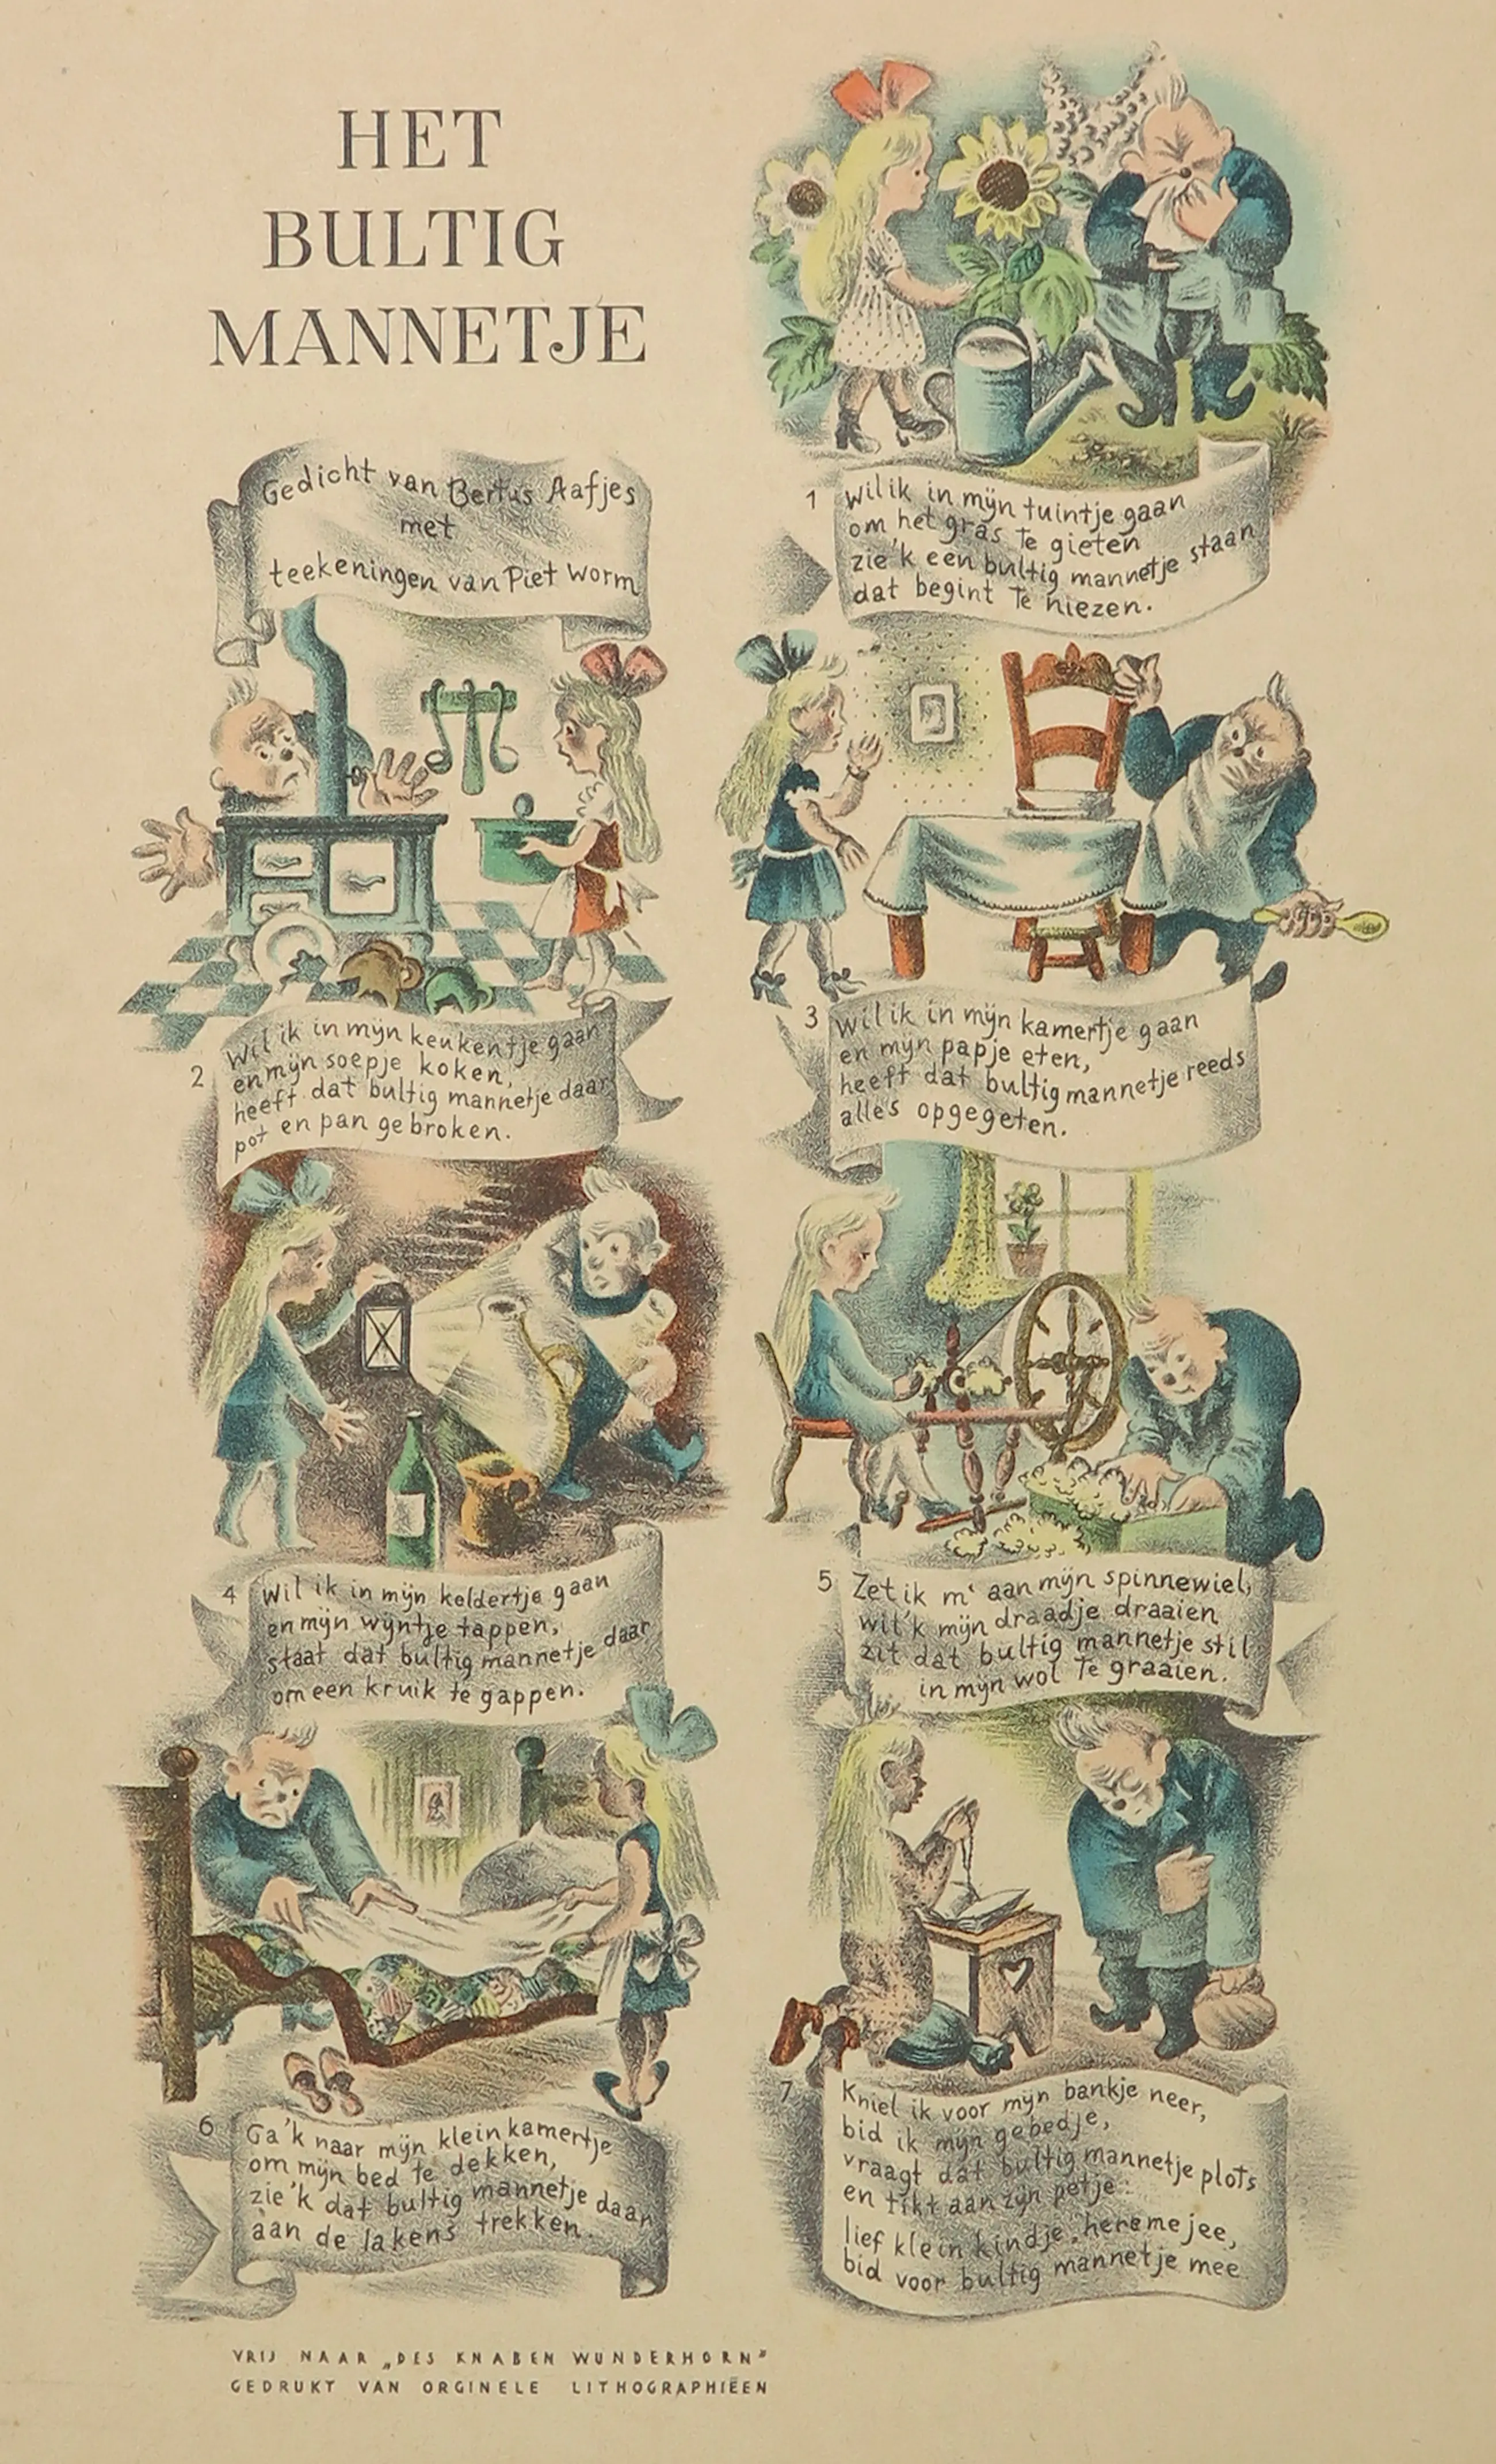 HET
BULTIG
MANNETJE
Gedicht van Bertus Aafjes
met
teekeningen van Piet Worm
1 Wil ik in mijn tuintje gaan
om het gras te gieten
zie'k een bultig mannetje staan
dat begint te niezen.
2 Wil ik in mijn keukentje gaan
en mijn soepje koken,
heeft dat bultig mannetje daar
pot en pan gebroken.
3 Wil ik in mijn kamertje gaan
en mijn papje eten,
heeft dat bultig mannetje reeds
alles opgegeten.
4 Wil ik in mijn keldertje gaan
en mijn wijntje tappen,
staat dat bultig mannetje daar
om een kruik te gappen.
5 Zet ik m' aan mijn spinnewiel,
wil'k mijn draadje draaien
zit dat bultig mannetje stil
in mijn wol te graaien.
6 Ga'k naar mijn klein kamertje
om mijn bed te dekken,
zie'k dat bultig mannetje daar
aan de lakens trekken.
7 Kniel ik voor mijn bankje neer,
bid ik mijn gebedje,
vraagt dat bultig mannetje plots
en tikt aan zijn petje:
lief klein kindje, heremejee,
bid voor bultig mannetje mee.
VRIJ NAAR „DES KNABEN WUNDERHORN"
GEDRUKT VAN ORGINELE LITHOGRAPHIËEN